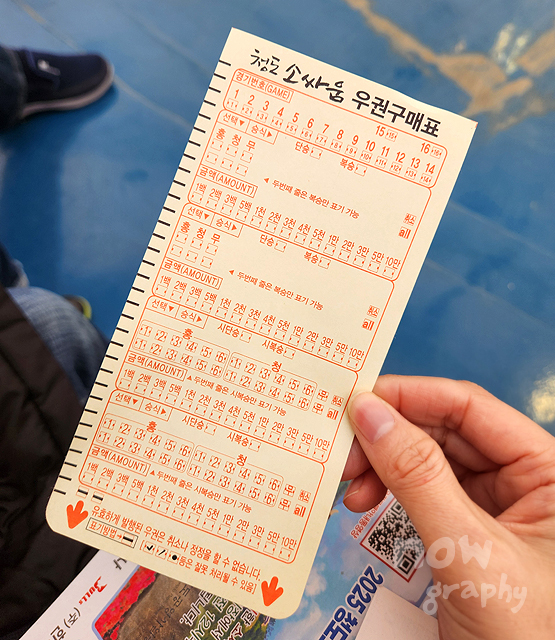 청도 소싸움 우권구매표
경기번호(GAME)
1 2 3 4 5 6 7 8 9 10 11 12 13 14 15 16
선택▼ 승식▶ 단승 복승
홍 청 무
◀ 두번째 줄은 복승만 표기 가능
금액(AMOUNT) 취소
1백 2백 3백 5백 1천 2천 3천 4천 5천 1만 2만 3만 5만 10만 all
선택▼ 승식▶ 단승 복승
홍 청 무
◀ 두번째 줄은 복승만 표기 가능
금액(AMOUNT) 취소
1백 2백 3백 5백 1천 2천 3천 4천 5천 1만 2만 3만 5만 10만 all
선택▼ 승식▶ 시단승 시복승
홍 청
1 2 3 4 5 6 1 2 3 4 5 6 무
1 2 3 4 5 6 1 2 3 4 5 6 무
금액(AMOUNT) ▲두번째줄은 시복승만 표기 가능 취소
1백 2백 3백 5백 1천 2천 3천 4천 5천 1만 2만 3만 5만 10만 all
선택▼ 승식▶ 시단승 시복승
홍 청
1 2 3 4 5 6 1 2 3 4 5 6 무
1 2 3 4 5 6 1 2 3 4 5 6 무
금액(AMOUNT) ▲두번째줄은 시복승만 표기 가능 취소
1백 2백 3백 5백 1천 2천 3천 4천 5천 1만 2만 3만 5만 10만 all
유효하게 발행된 우권은 취소나 정정을 할 수 없습니다.
표기방법→ (✓, ●등은 잘못 처리될 수 있음)
2025 청도
graphy